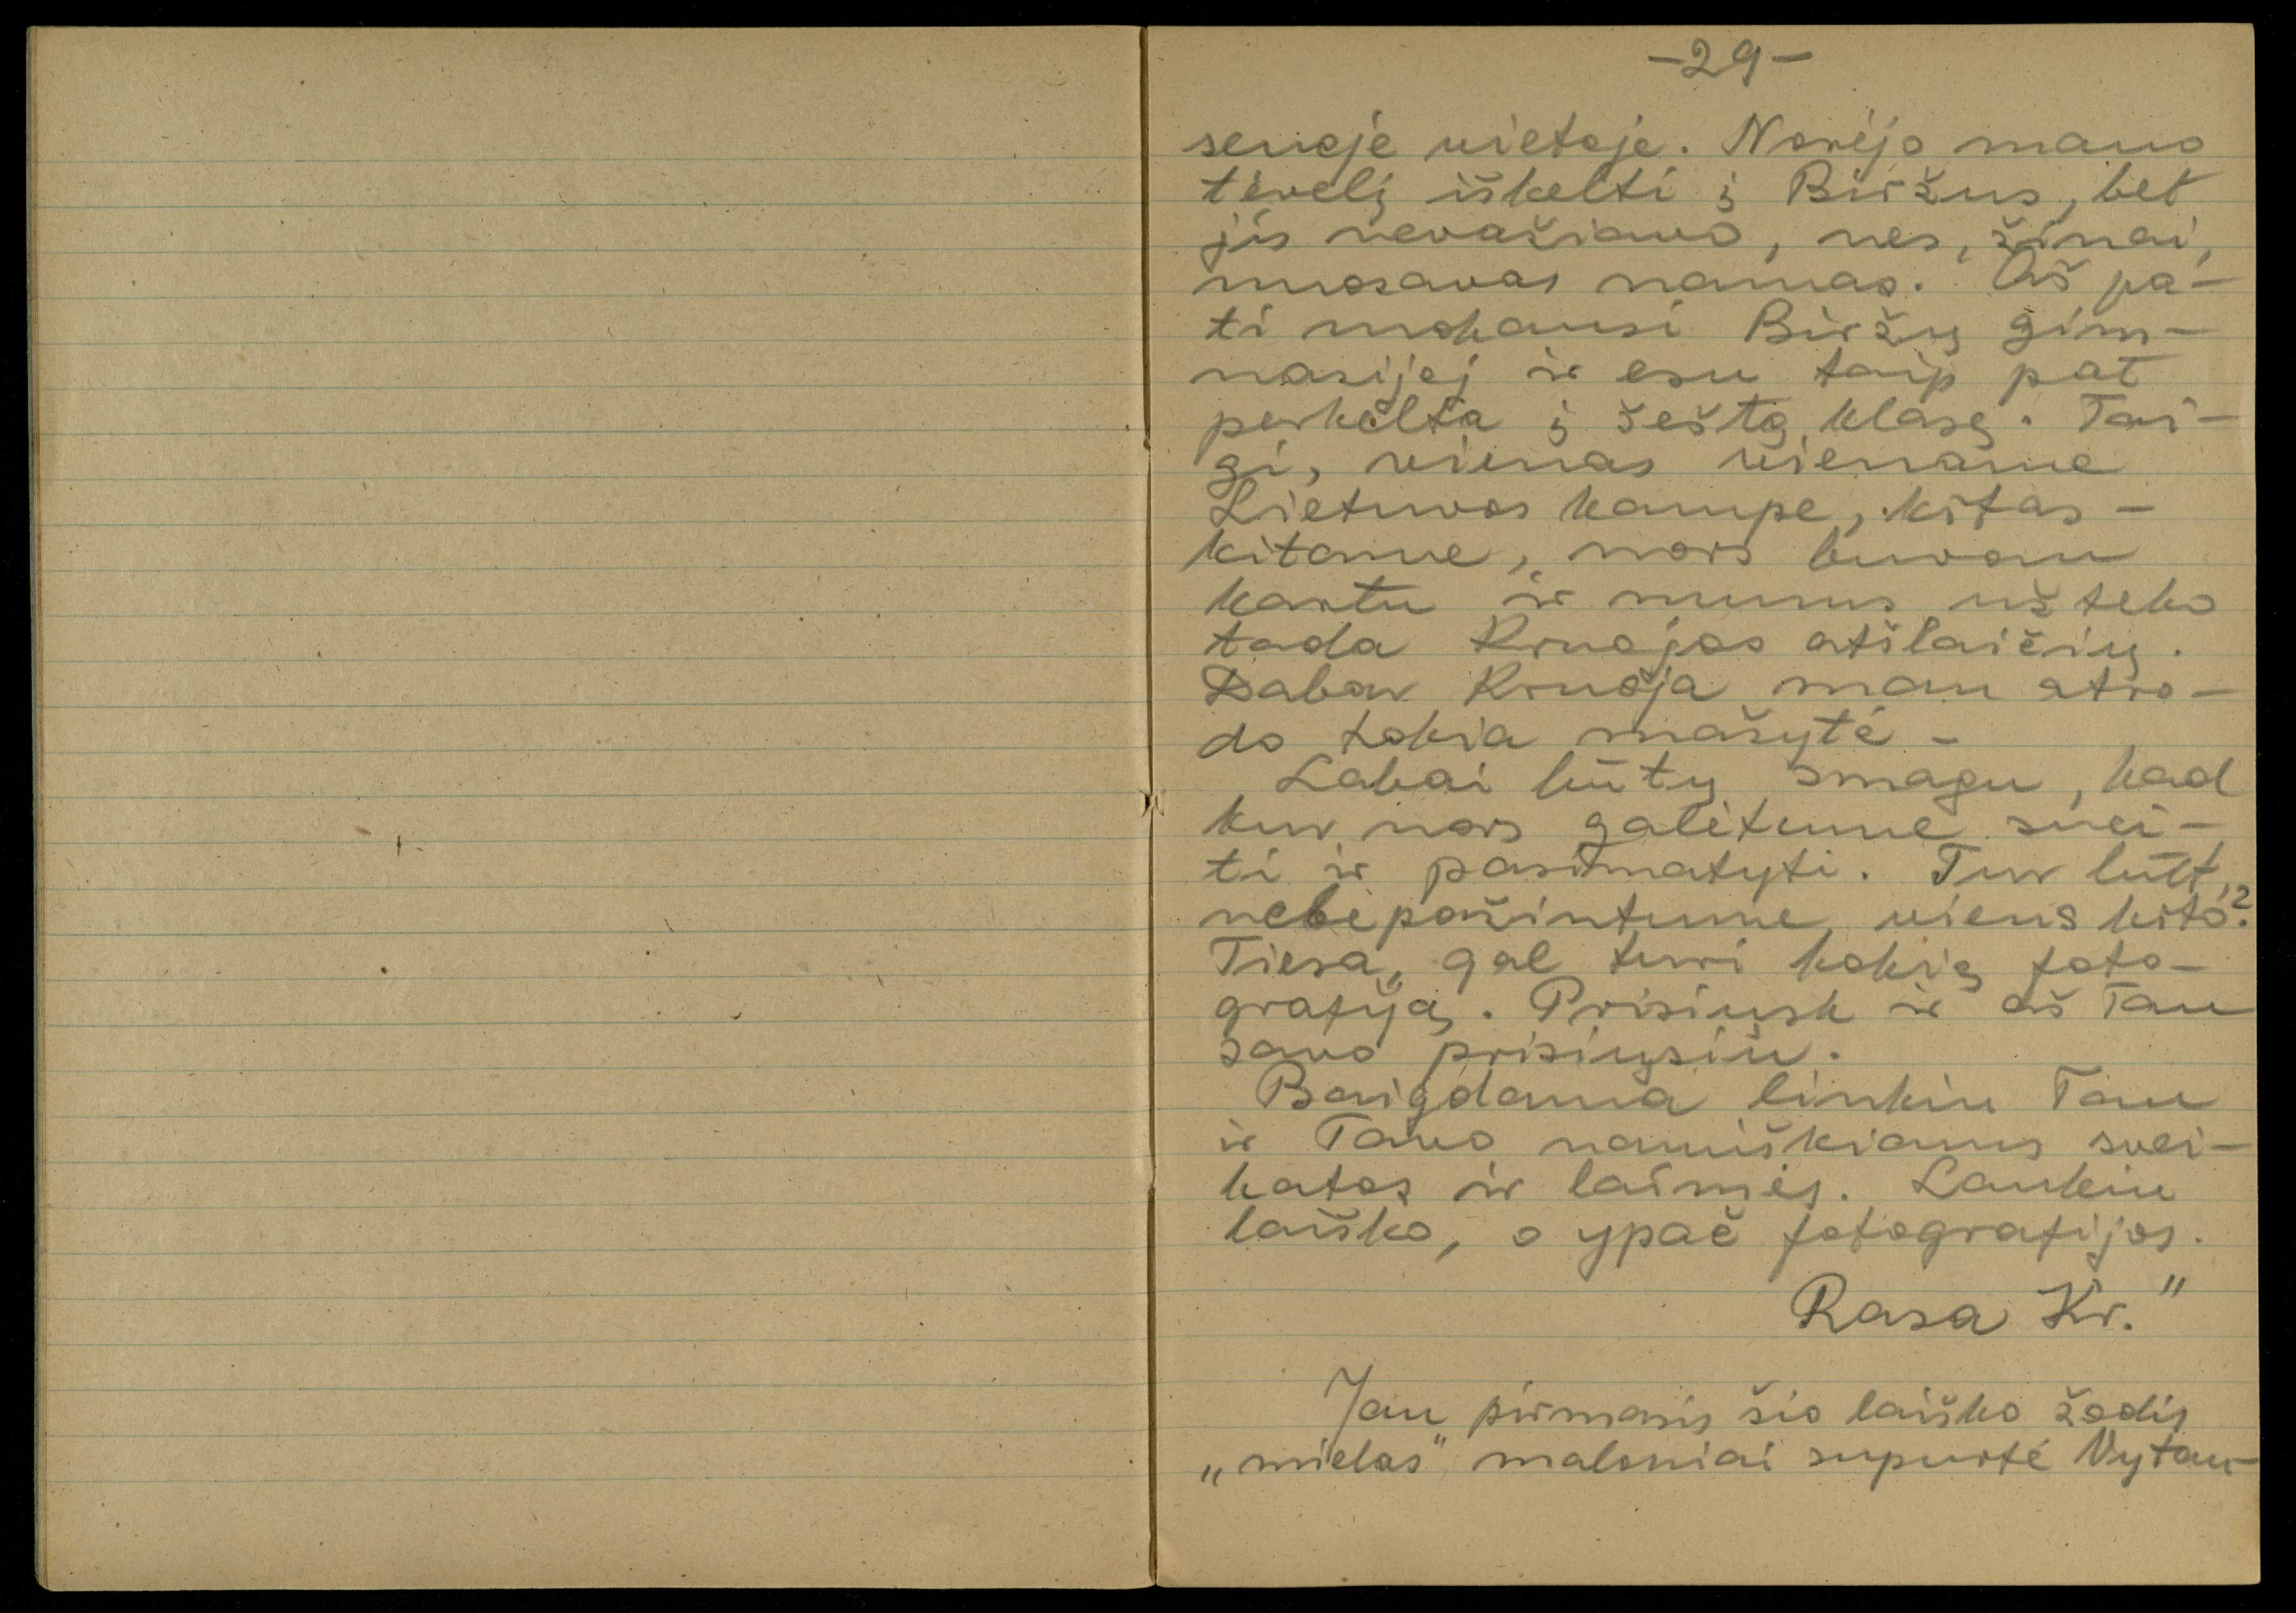 -29-
senoje vietoje. Norėjo mano
tėvelį iškelti į Biržus, bet
jis nevažiavo, nes, žinai,
nuosavas namas. Aš pa-
ti mokausi Biržų gim-
nasijoj ir esu taip pat
perkelta į šeštą klasę. Tai-
gi, vienas viename
Lietuvos kampe, kitas -
kitame, nors buvom
kartu ir mums užteko
tada Kruojos atšlaičių.
Dabar Kruoja man atro-
do tokia mažytė -
Labai būtų smagu, kad
kur nors galėtume suei-
ti ir pasimatyti. Tur būt,
nebepažintume viens kito?
Tiesa, gal turi kokią foto-
grafiją. Prisiųsk ir aš Tau
savo prisiųsiu.
Baigdama linkiu Tau
ir Tavo namiškiams svei-
katos ir laimės. Laukiu
laiško, o ypač fotografijos.
Rasa Kr."
Jau pirmasis šio laiško žodis
„mielas" maloniai supurtė Vytau-